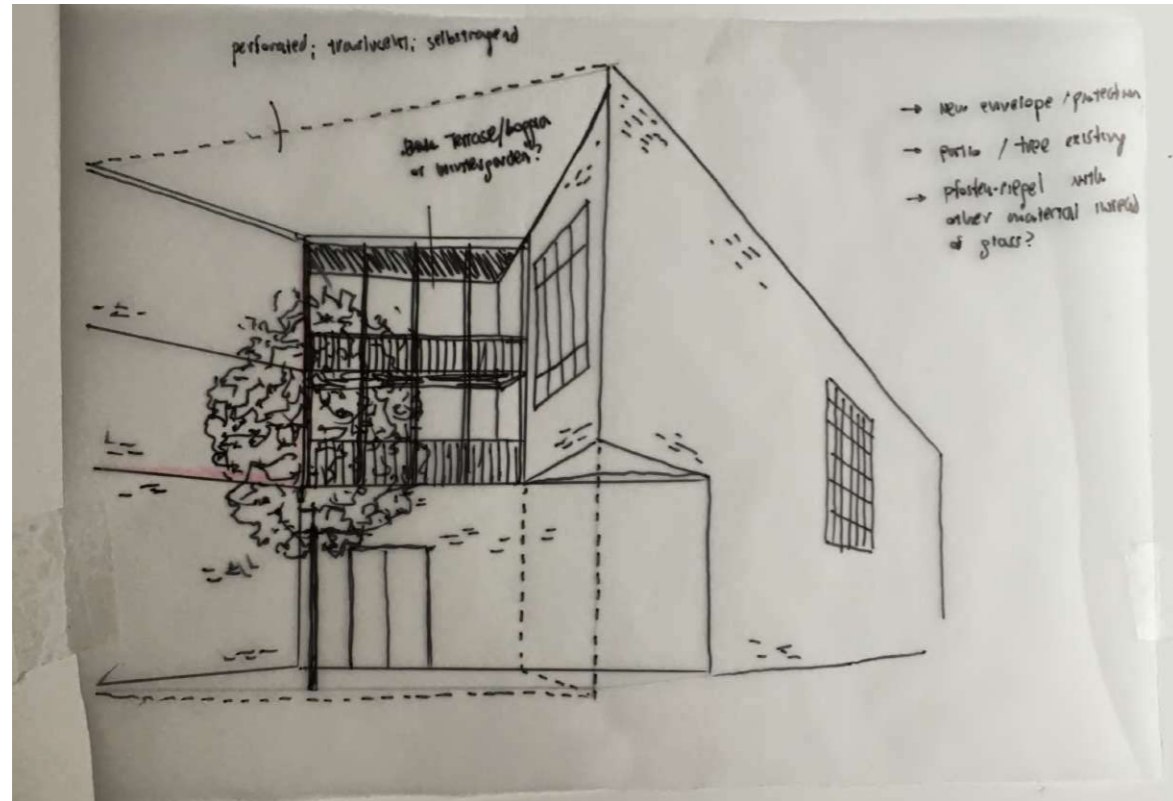 perforated; translucent; selbsttragend
Terrasse/Loggia
or wintergarden?
→ new envelope / protection
→ patio / tree existing
→ pfosten-riegel with
other material instead
of glass?